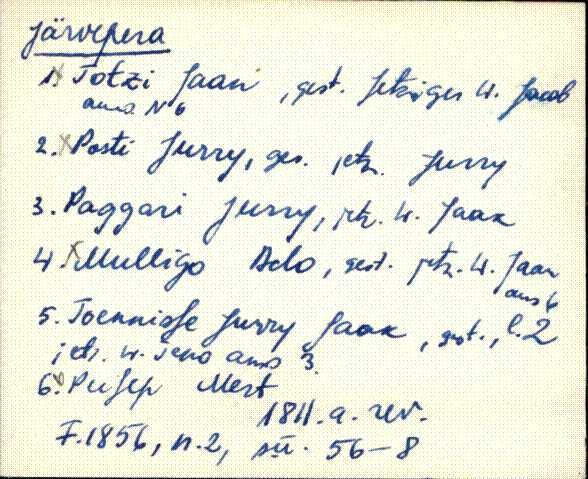 Järvepera
1. Totzi Jaan, gest. Jetziger W. Jacob
aus N 6
2. Posti Jurry, ges. jetz. Jurry
3. Paggari Jurry, jetz. W. Jaak
4. Mulligo Ado, gest. jetz. W. Jaan
aus 6
5. Toennisse Jurry Jaak, gest., l. 2
jetz. W. Teno aus 3.
6. Mert
1811.a. rev.
F.1856, n.2, sü. 56-8